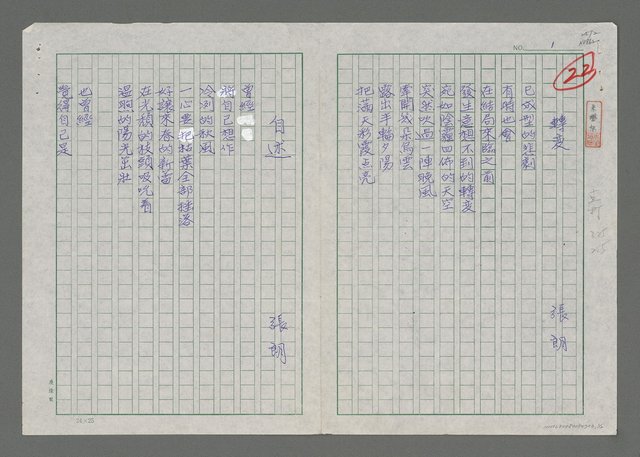 NO. 1
22
轉變
張朗
已成型的雅劇
有時也會
在結局來臨之前
發生意想不到的轉變
宛如陰霾四佈的天空
突然吹過一陣晚風
牽開幾朵烏雲
露出半輪夕陽
把滿天彩霞点亮
自述
張朗
曾經
將自己想作
冷冽的秋風
一心要把枯葉全部掃落
好讓來春的新苗
在光禿的枝頭吸吮著
溫煦的陽光茁壯
也曾經
覺得自己是
24×25